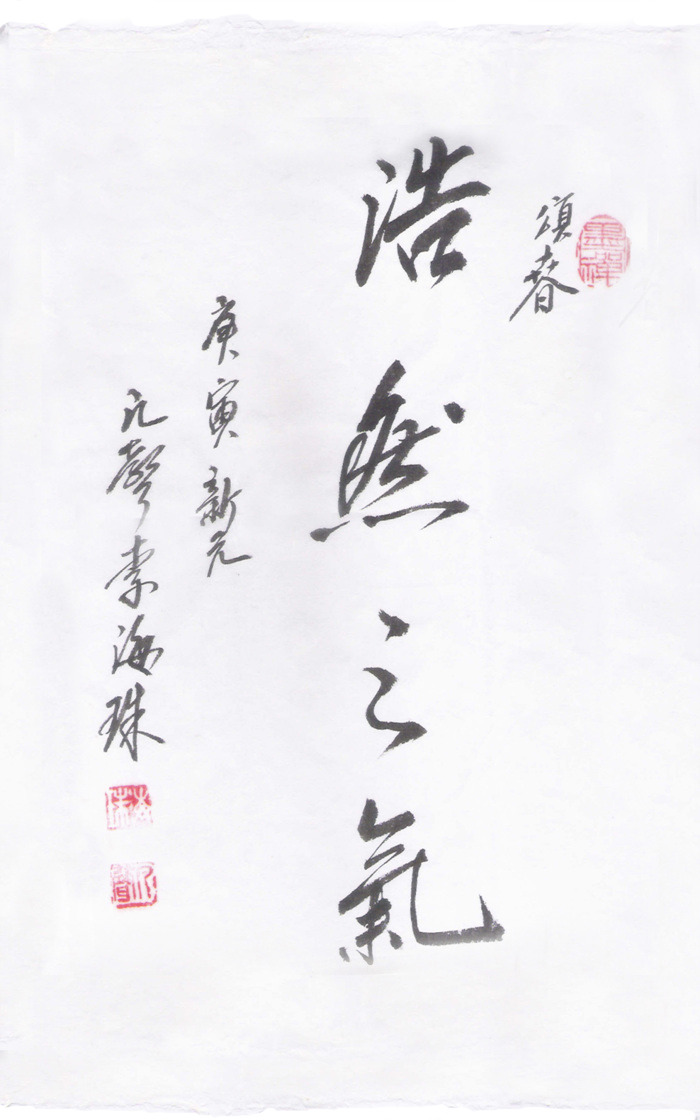 墨禪
頌春
浩然之氣
庚寅新元
聲李海珠